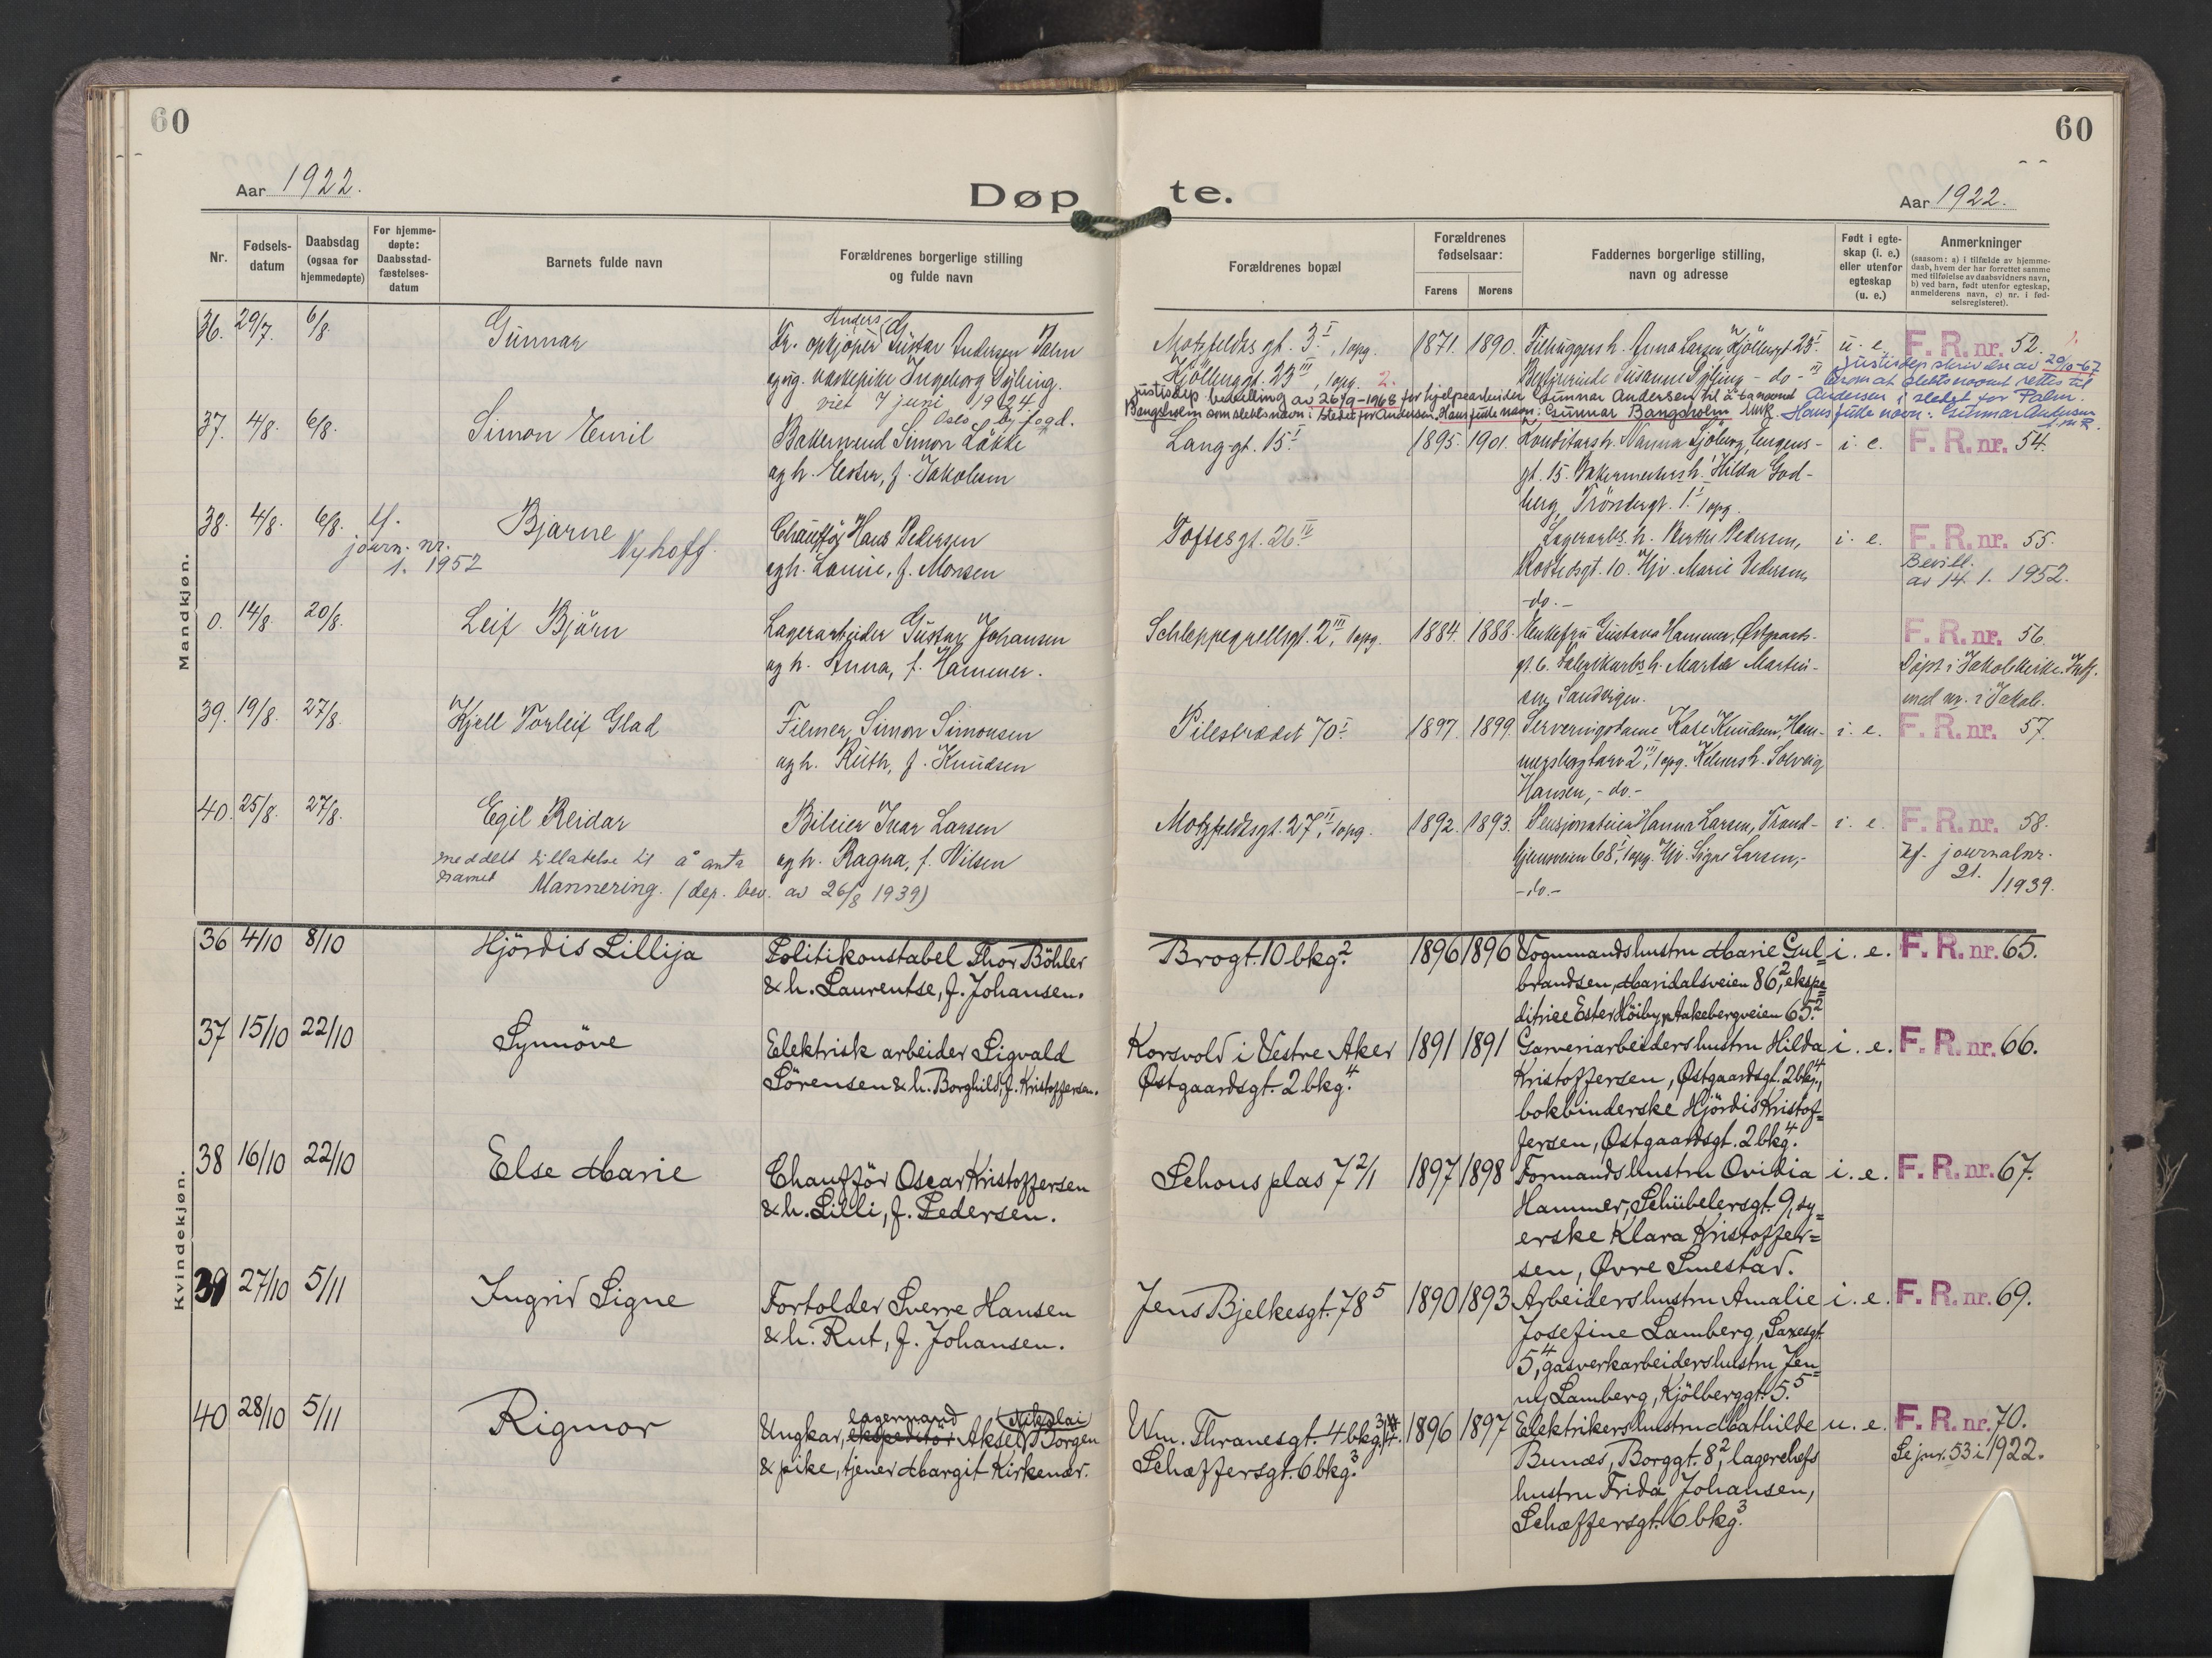 60
60
Aar 1922.
Døpte.
Aar 1922.
Nr.
Fødselsdatum
Daabsdag (ogsaa for hjemmedøpte)
For hjemmedøpte: Daabsstadfæstelsesdatum
Barnets fulde navn
Forældrenes borgerlige stilling og fulde navn
Forældrenes bopæl
Forældrenes fødselsaar:
Farens
Morens
Faddernes borgerlige stilling, navn og adresse
Født i egteskap (i. e.) eller utenfor egteskap (u. e.)
Anmerkninger
(saasom: a) i tilfælde av hjemmedaab, hvem der har forrettet samme med tilføielse av daabsvidners navn, b) ved barn, født utenfor egteskap, anmelderens navn, c) nr. i fødselsregisteret).
Mandkjøn.
36. 29/7. 6/8. Gunnar
Anders
Fr. opkjøper Gustav Andersen Palm
og ug. vaskepike Ingeborg Syling.
viet 7 juni 1924
Oslo byfogd.
Motzfeldts gt. 3 I, 1 opg.
Kjölberggt. 25 III, 1 opg. 2.
1871. 1890.
Filhuggersh. Anna Larsen Kjölberggt 25 I.
Susanne Syling - do - III
u. e. F. R. nr. 52.
Justisdep skrivelse av 20/10-67
om at slektsnavnet rettes til
Andersen i stedet for Palm.
Hans fulle navn: Gunnar Andersen
Justisdep bevilling av 26/9-1968 for hjelpearbeider Gunnar Andersen til å ta navnet
Bangsholm som slektsnavn i stedet for Andersen. Hans fulle navn: Gunnar Bangsholm
37. 4/8. 6/8. Simon Emil
Bakersvend Simon Løkke
og h. Ester, f. Jakobsen
Lang-gt. 15 I
1895. 1901.
Konditorsh. Nanna Sjöberg, Eugens-
gt. 15. Bakermestersh. Hilda God-
berg, Tröndergt. 1 I 1 opg.
i. e. F. R. nr. 54.
38. 4/8. 6/8. Bjarne Nyhoff.
jf. journ. nr. 1. 1952
Chauffør Hans Pedersen
og h. Lovise, f. Monsen
Toftesgt. 26 IV
Lagerarbs. h. Berthe Pedersen,
Rostedsgt. 10. Hjv. Marie Pedersen,
-do.-
i. e. F. R. nr. 55.
Bevill.
av 14. 1. 1952.
0. 14/8. 20/8. Leif Björn
Lagerarbeider Gustav Johansen
og h. Anna, f. Hammer.
Schleppegrellsgt. 2 III, 1 opg.
1884. 1888.
Enkefru Gustava Hammer, Østgaards-
gt. 6. Fabrikarbs h. Martha Martin-
sen, Sandvigen.
F. R. nr. 56
Döpt i Jakobkirke. Indf.
med nr. i Jakob.
39. 19/8. 27/8. Kjell Torleif Glad
Filmer Simon Simonsen
og h. Ruth, f. Knudsen
Pilestrædet 70 I
1897. 1899.
Serveringsdame Kate Knudsen, Ham-
mersborgtorv 2 III, 1 opg. Kelnersh. Solveig
Hansen, - do.-
i. e. F. R. nr. 57.
40. 25/8. 27/8. Egil Reidar
Bileier Ivar Larsen
og h. Ragna, f. Nilsen
meddelt tillatelse til å anta
navnet Mannering. (dep. bev. av 26/8 1939)
Motzfeldtsgt. 27 II, 1 opg.
1892. 1893.
Pensjonateier Hanna Larsen, Trond-
hjemsveien 68 I, 1 opg. Hjv. Signe Larsen,-
-do.-
i. e. F. R. nr. 58.
Jf. journalnr.
21. /1939.
Kvindekjøn.
36 4/10 8/10 Hjördis Lillija
Politikonstabel Thor Böhler
& h. Laurentse, f. Johansen.
Brogt. 10 bkg.²
1896 1896
Vognmandshustru Marie Gul=
brandsen, Maridalsveien 86², ekspe=
ditrice Ester Höiby, Akebergveien 65.²
i. e. F. R. nr. 65.
37 15/10 22/10 Synnöve
Elektrisk arbeider Sigvald
Sörensen & h. Borghild, f. Kristoffersen.
Korsvold i Vestre Aker
Østgaardsgt. 2 bkg.⁴
1891 1891
Garveriarbeidershustru Hilda
Kristoffersen, Østgaardsgt. 2 bkg.⁴,
bokbinderske Hjördis Kristof=
fersen, Østgaardsgt. 2 bkg.⁴
i. e. F. R. nr. 66.
38 16/10 22/10 Else Marie
Chaufför Oscar Kristoffersen
& h. Lilli, f. Pedersen.
Schous plas 7 2/1
1897 1898
Formandshustru Ovidia
Hammer, Schübelersgt. 9, sy=
erske Klara Kristoffer=
sen, Øvre Smestad.
i. e. F. R. nr. 67.
39 27/10 5/11 Ingrid Signe
Fortolder Sverre Hansen
& h. Rut, f. Johansen.
Jens Bjelkesgt. 78⁵
1890 1893
Arbeidershustru Amalie
Josefine Lamberg, Saxesgt.
5,⁴ gasverkarbeidershustru Jen=
ny Lamberg, Kjölberggt. 5.⁵
i. e. F. R. nr. 69.
40 28/10 5/11 Rigmor
lagermand Nikolai
Ungkar, ekspeditör Aksel Borgen
& pike, tjener Margit Kirkenær.
Wm. Thranesgt. 4 bkg.
Schæffersgt. 6 bkg.³
1896 1897
Elektrikershustru Mathilde
Bunæs, Borggt. 8², lagerchefs
hustru Frida Johansen,
Schæffersgt. 6 bkg.³
u. e. F. R. nr. 70.
Se jnr. 53 i 1922.